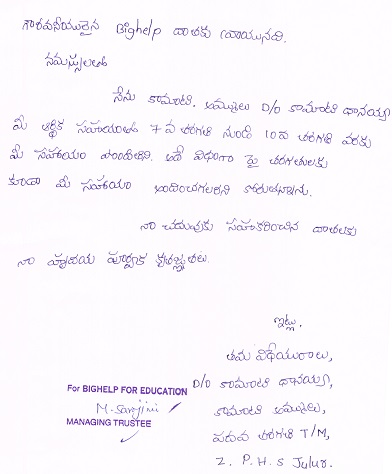 గౌరవనీయులైన Bighelp దాతకు వ్రాయునది.
నమస్సులతో
నేను కామంటి. అమ్ములు D/o కామంటి ధానయ్య
మీ ఆర్థిక సహాయంతో 7 వ తరగతి నుండి 10వ తరగతి వరకు
మీ సహాయం పొందితిని. ఇదే విధంగా పై చదువులకు
కూడా మీ సహాయం అందించగలరని కోరుచున్నాను.
నా చదువుకు సహకరించిన దాతలకు
నా హృదయ పూర్వక కృతజ్ఞతలు.
ఇట్లు,
తమ విధేయురాలు,
D/o కామంటి ధానయ్య,
కామంటి అమ్ములు,
పదవ తరగతి T/M,
Z. P. H. S Julur.
For BIGHELP FOR EDUCATION
M. Sarojini
MANAGING TRUSTEE